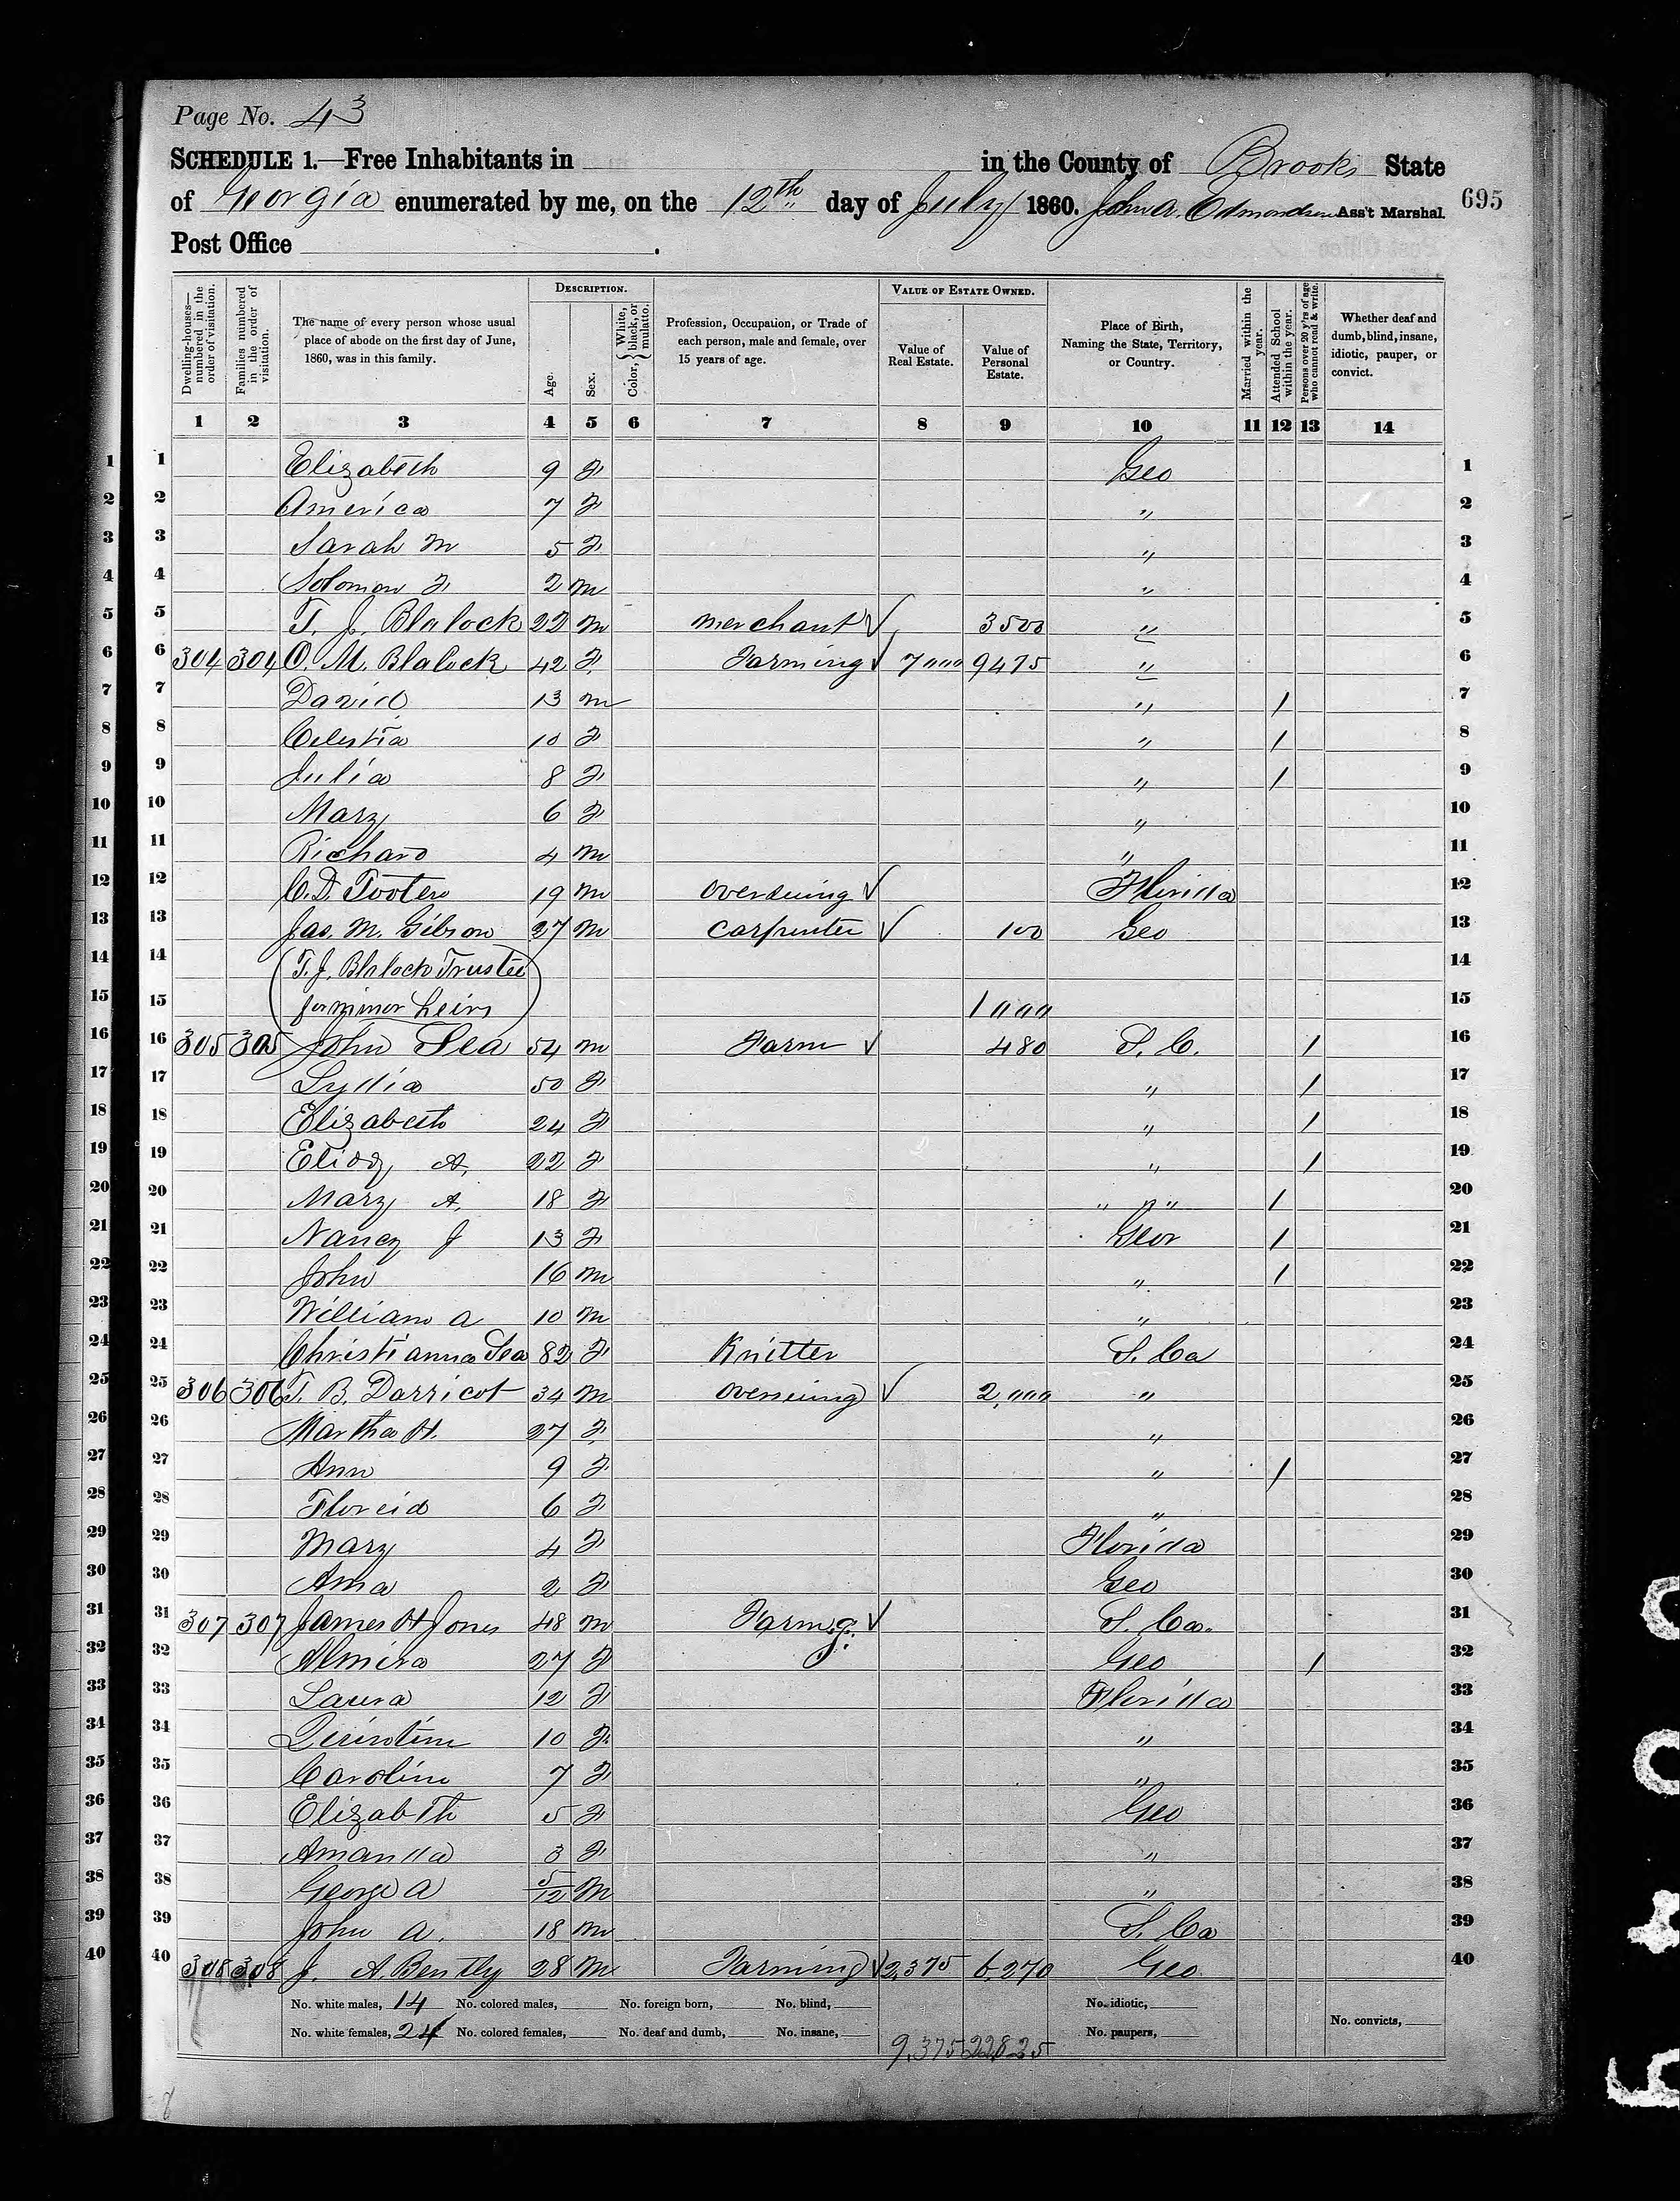 Page No. 43
SCHEDULE 1.—Free Inhabitants in in the County of Brooks State
of Georgia enumerated by me, on the 12th day of July 1860. John A. Edmondson Ass't Marshal. 695
Post Office .
Dwelling-houses—numbered in the order of visitation. Families numbered in the order of visitation. The name of every person whose usual place of abode on the first day of June, 1860, was in this family. DESCRIPTION. Age. Sex. Color, { White, black, or mulatto. Profession, Occupation, or Trade of each person, male and female, over 15 years of age. VALUE OF ESTATE OWNED. Value of Real Estate. Value of Personal Estate. Place of Birth, Naming the State, Territory, or Country. Married within the year. Attended School within the year. Persons over 20 y'rs of age who cannot read & write. Whether deaf and dumb, blind, insane, idiotic, pauper, or convict.
1 2 3 4 5 6 7 8 9 10 11 12 13 14
1 1 Elizabeth 9 F Geo 1
2 2 America 7 F " 2
3 3 Sarah M 5 F " 3
4 4 Solomon F 2 m " 4
5 5 T. J. Blalock 22 m merchant ✓ 3500 " 5
6 6 304 304 O. M. Blalock 42 F Farming ✓ 7000 9475 " 6
7 7 David 13 m " / 7
8 8 Celestia 10 F " / 8
9 9 Julia 8 F " / 9
10 10 Mary 6 F " 10
11 11 Richard 4 m " 11
12 12 C. D. Tooten 19 m overseing ✓ Florida 12
13 13 Jas. M. Gibson 27 m carpenter ✓ 100 Geo 13
14 14 (T. J. Blalock Trustee 14
15 15 for minor heirs) 1000 15
16 16 305 305 John Lea 54 m Farm ✓ 480 S. C. / 16
17 17 Lydia 50 F " / 17
18 18 Elizabeth 24 F " / 18
19 19 A. 22 F " / 19
20 20 Mary A. 18 F " " " / 20
21 21 Nancy J 13 F Geor / 21
22 22 John 16 m " / 22
23 23 William A 10 m " 23
24 24 Christianna Lea 82 F Knitter S. Ca 24
25 25 306 306 T. B. Darricot 34 m overseing ✓ 2,000 " 25
26 26 Martha H. 27 F " 26
27 27 Ann 9 F " / 27
28 28 Floreid 6 F " 28
29 29 Mary 4 F Florida 29
30 30 Ama 2 F Geo 30
31 31 307 307 James H Jones 48 m Farmg. ✓ S. Ca. 31
32 32 Almira 27 F Geo / 32
33 33 Laura 12 F Florida 33
34 34 10 F " 34
35 35 Caroline 7 F " 35
36 36 Elizabth 5 F Geo 36
37 37 Amanda 3 F " 37
38 38 George A 5/12 M " 38
39 39 John A. 18 m S. Ca 39
40 40 308 308 J. A. Bently 28 m Farming ✓ 2,375 6,270 Geo 40
No. white males, 14 No. colored males, No. foreign born, No. blind, No. idiotic,
No. white females, 24 No. colored females, No. deaf and dumb, No. insane, 9,375 22825 No. paupers, No. convicts,